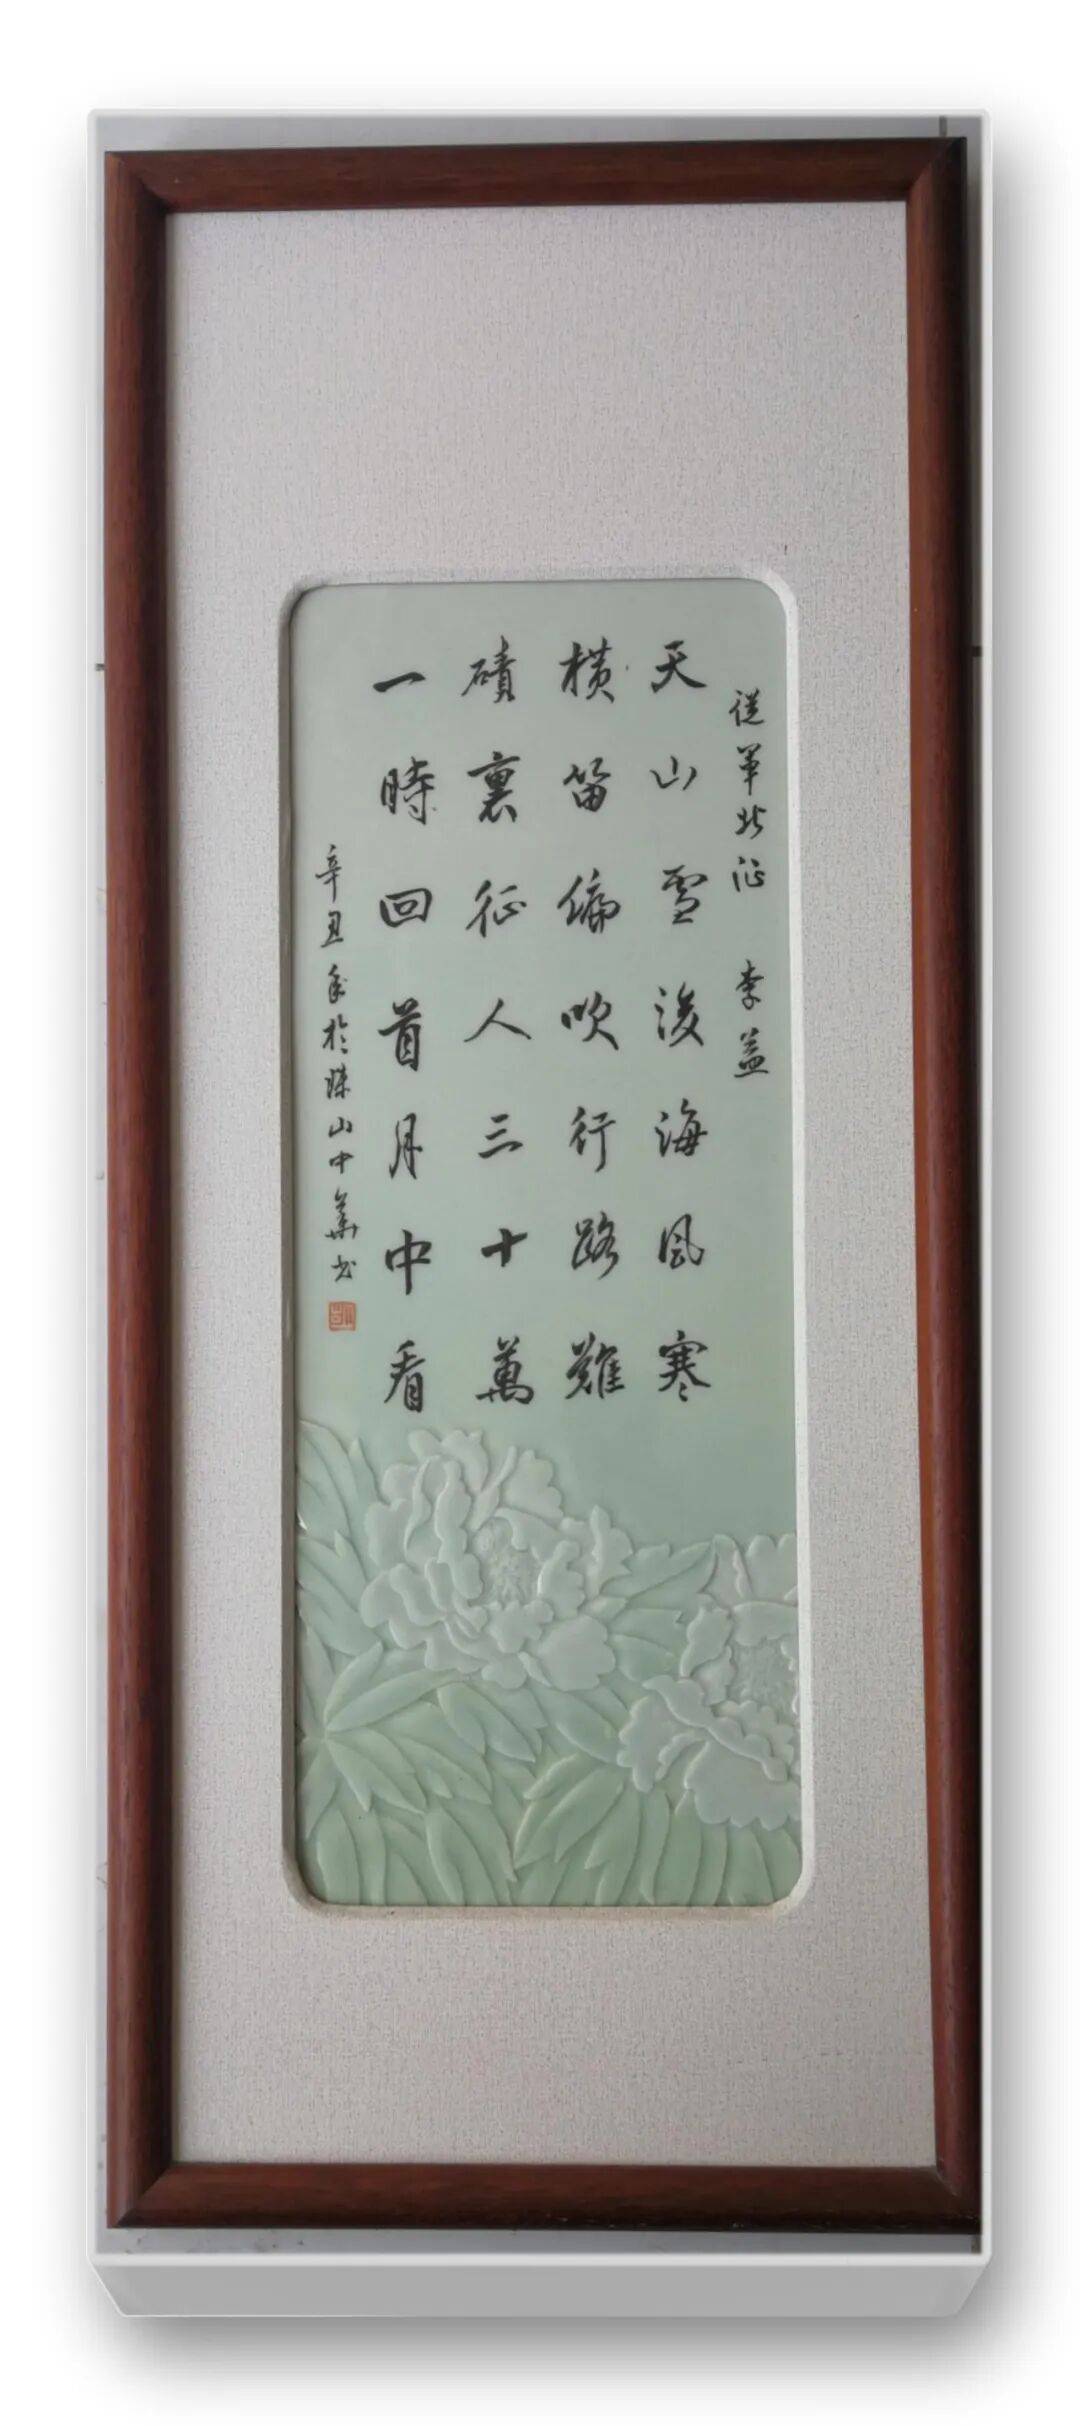 從軍北征 李益
天山雪後海風寒
橫笛偏吹行路難
磧裏征人三十萬
一時回首月中看
辛丑年於珠山中華書